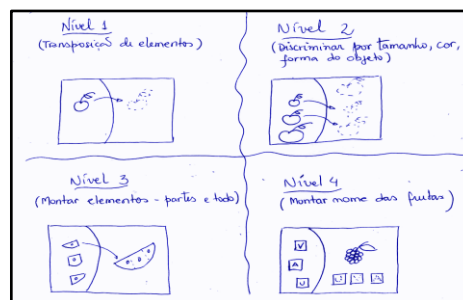 Nível 1
(Transposição de elementos)
Nível 2
(Discriminar por tamanho, cor,
forma do objeto)
Nível 3
(Montar elementos - partes e todo)
Nível 4
(Montar nome das frutas)
V
A
U
U V A